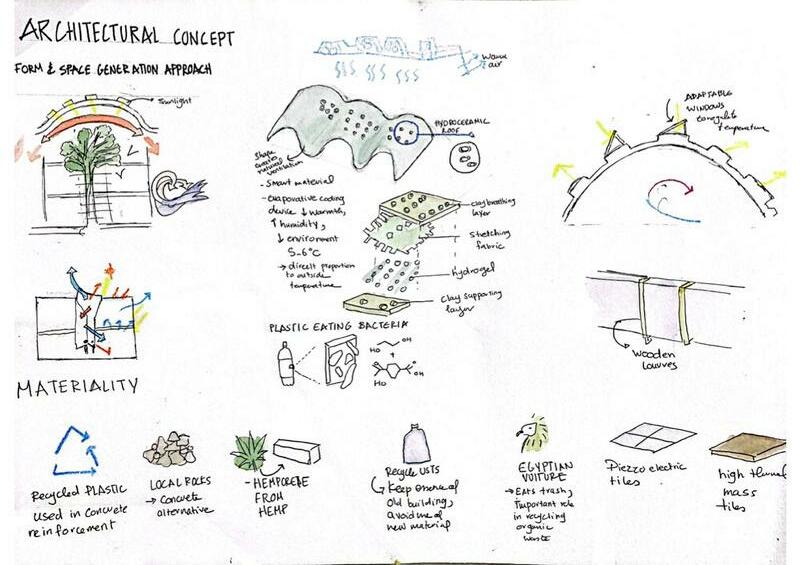 ARCHITECTURAL CONCEPT
FORM & SPACE GENERATION APPROACH
Sunlight
Warm
air
HYDROCERAMIC
ROOF
Shape
creates
natural
ventilation
- Smart material
- evaporative cooling
device ↓ warmth,
↑ humidity,
↓ environment
5-6°C
→ direct proportion
to outside
temperature
clay breathing
layer
Stretching
fabric
hydrogel
clay supporting
layer
ADAPTABLE
WINDOWS
to regulate
temperature
Wooden
louvres
PLASTIC EATING BACTERIA
HO OH
+
HO OH
MATERIALITY
Recycled PLASTIC
used in Concrete
reinforcement
LOCAL ROCKS
→ Concrete
alternative
- HEMPCRETE
FROM
HEMP
Keep essence of
Old building,
avoid use of
new material
EGYPTIAN
VULTURE
→ Eats trash,
Important role
in recycling
organic
waste
Piezzo electric
tiles
high thermal
mass
tiles